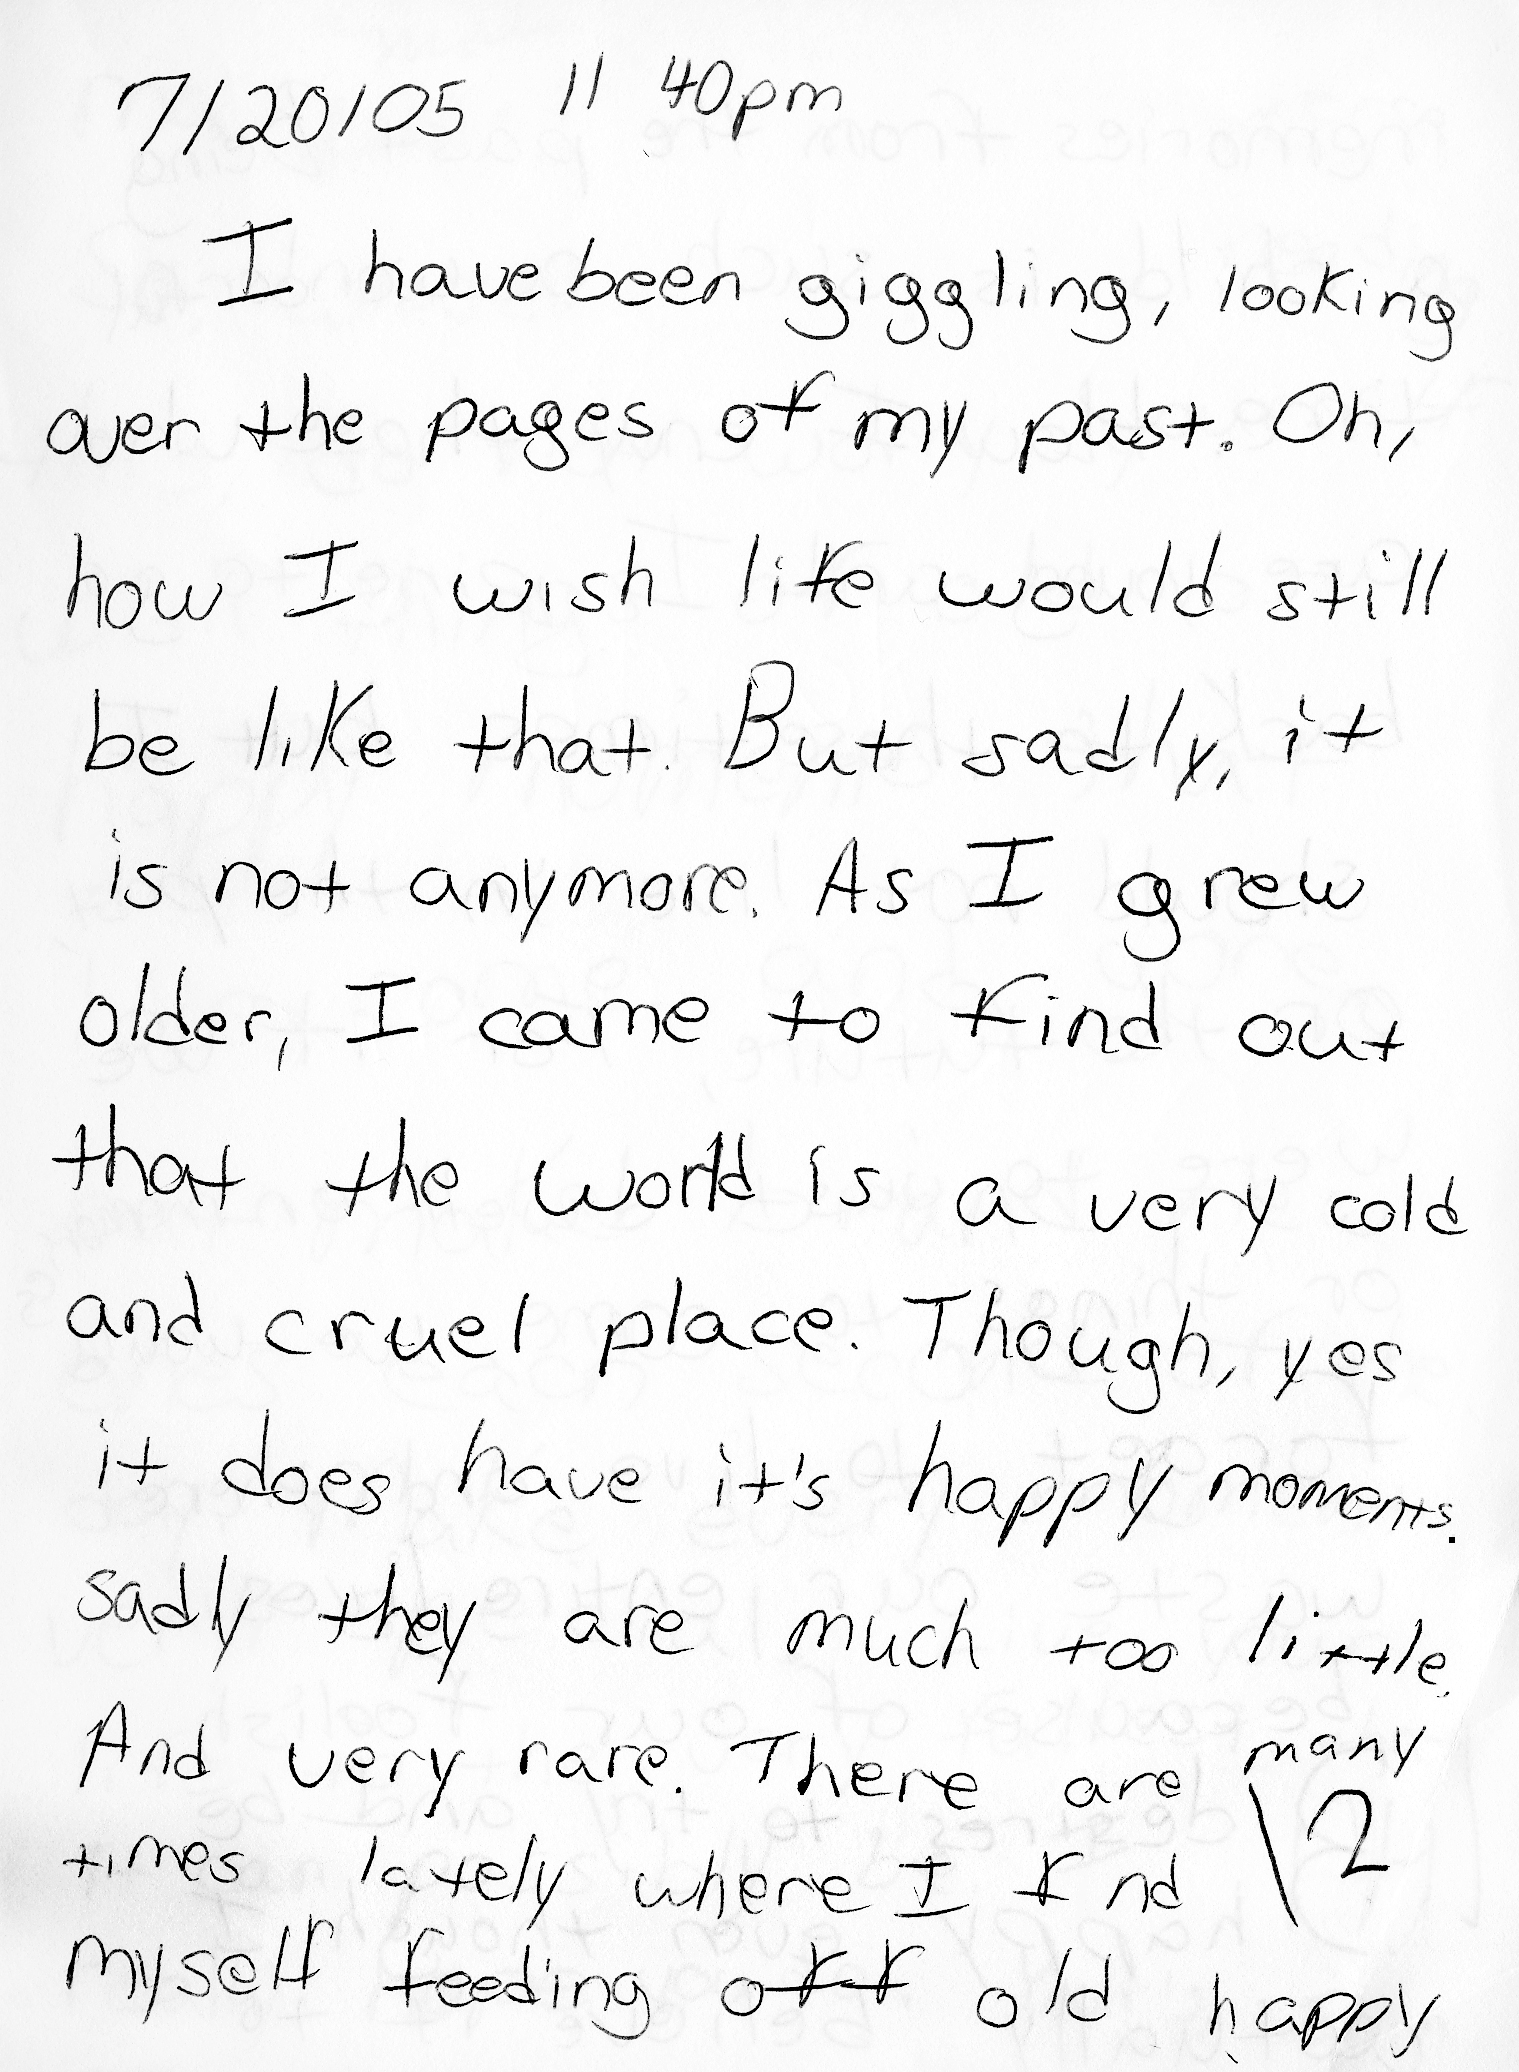 7/20/05 11 40pm
I have been giggling, looking
over the pages of my past. Oh,
how I wish life would still
be like that. But sadly, it
is not anymore. As I grew
older, I came to find out
that the world is a very cold
and cruel place. Though, yes
it does have it's happy moments.
sadly they are much too little.
And very rare. There are many
times lately where I find
myself feeding off old happy
\2